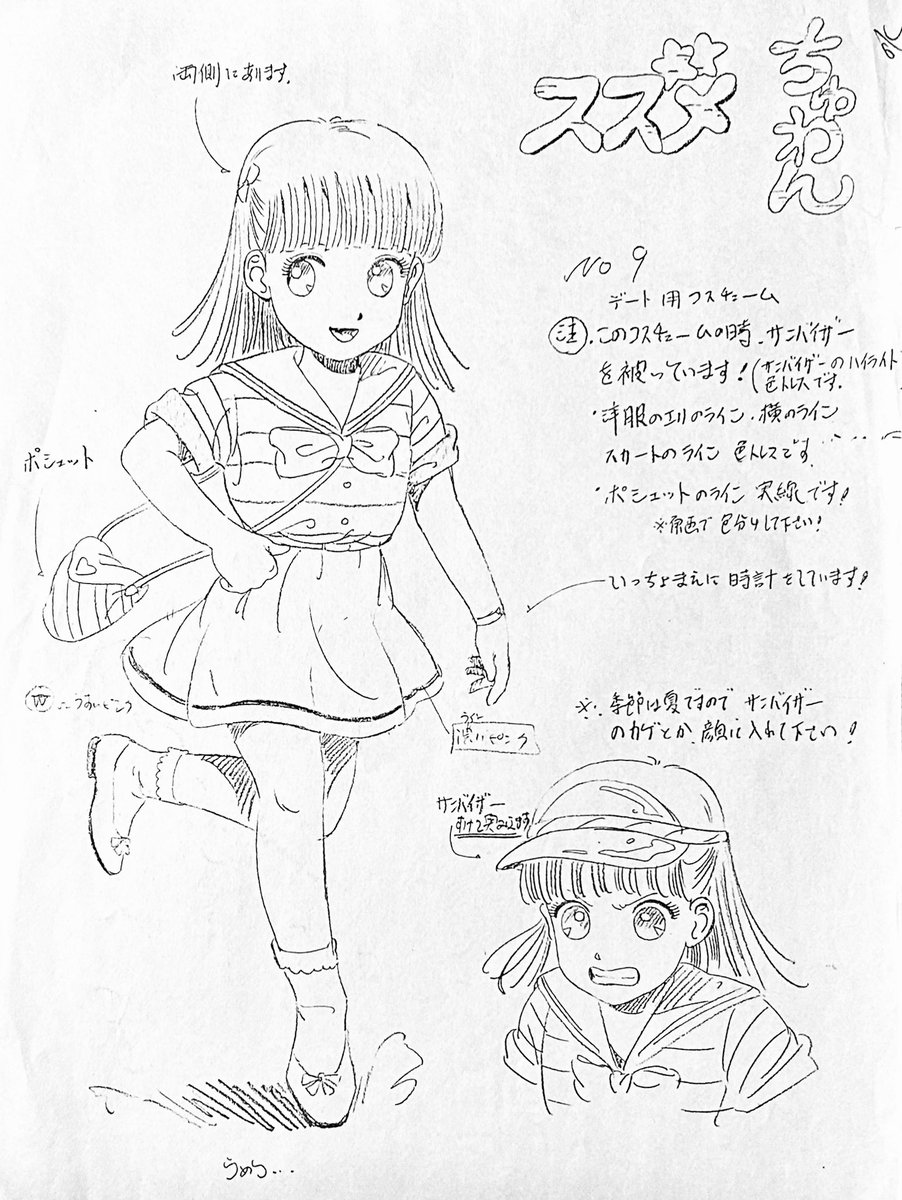 両側にあります.
スズメ
ちゅわん
No 9
デート用コスチューム
注.このコスチュームの時.サンバイザー
を被っています!(サンバイザーのハイライト
色トレスです.
・洋服のエリのライン.横のライン
スカートのライン 色トレスです.
・ポシェットのライン 実線です!
※原画で色分けして下さい!
ポシェット
いっちょまえに時計をしています!
W…うすいピンク
ライン
濃いピンク
※.季節は夏ですので サンバイザー
のカゲとか、顔に入れて下さい!
サンバイザー
すけて実線です!
うめち...